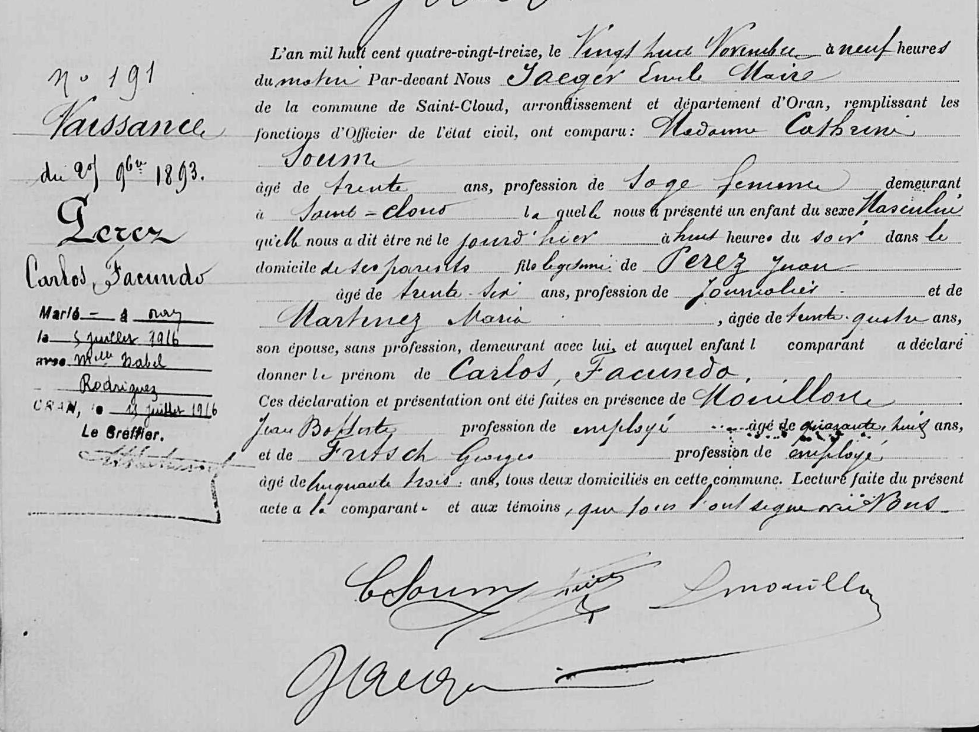 N° 191
Naissance
du 27 9bre 1893.
Perez
Carlos, Facundo
Marié - à Oran
le 5 juillet 1916
avec Melle Isabel
Rodriguez
ORAN, le juillet 1916
Le Greffier.
L'an mil huit cent quatre-vingt-treize, le Vingt huit Novembre à neuf heures
du matin Par-devant Nous Jaeger Emile Maire
de la commune de Saint-Cloud, arrondissement et département d'Oran, remplissant les
fonctions d'Officier de l'état civil, ont comparu: Madame Cathrine
Soum
âgé de trente ans, profession de Sage femme demeurant
à Saint-Cloud la quelle nous a présenté un enfant du sexe Masculin
qu'elle nous a dit être né le jourd'hier à huit heures du soir dans le
domicile de ses parents fils légitime de Perez Juan
âgé de trente-six ans, profession de Journalier et de
Martinez Maria, âgée de trente-quatre ans,
son épouse, sans profession, demeurant avec lui, et auquel enfant l comparant a déclaré
donner le prénom de Carlos, Facundo.
Ces déclaration et présentation ont été faites en présence de Mouillon
Jean Baptiste profession de employé âgé de quarante huit ans,
et de Fritsch Georges profession de employé,
âgé de cinquante trois ans, tous deux domiciliés en cette commune. Lecture faite du présent
acte a la comparant et aux témoins, que tous l'ont signé Nous
C Soum
Mouillon
Jaeger